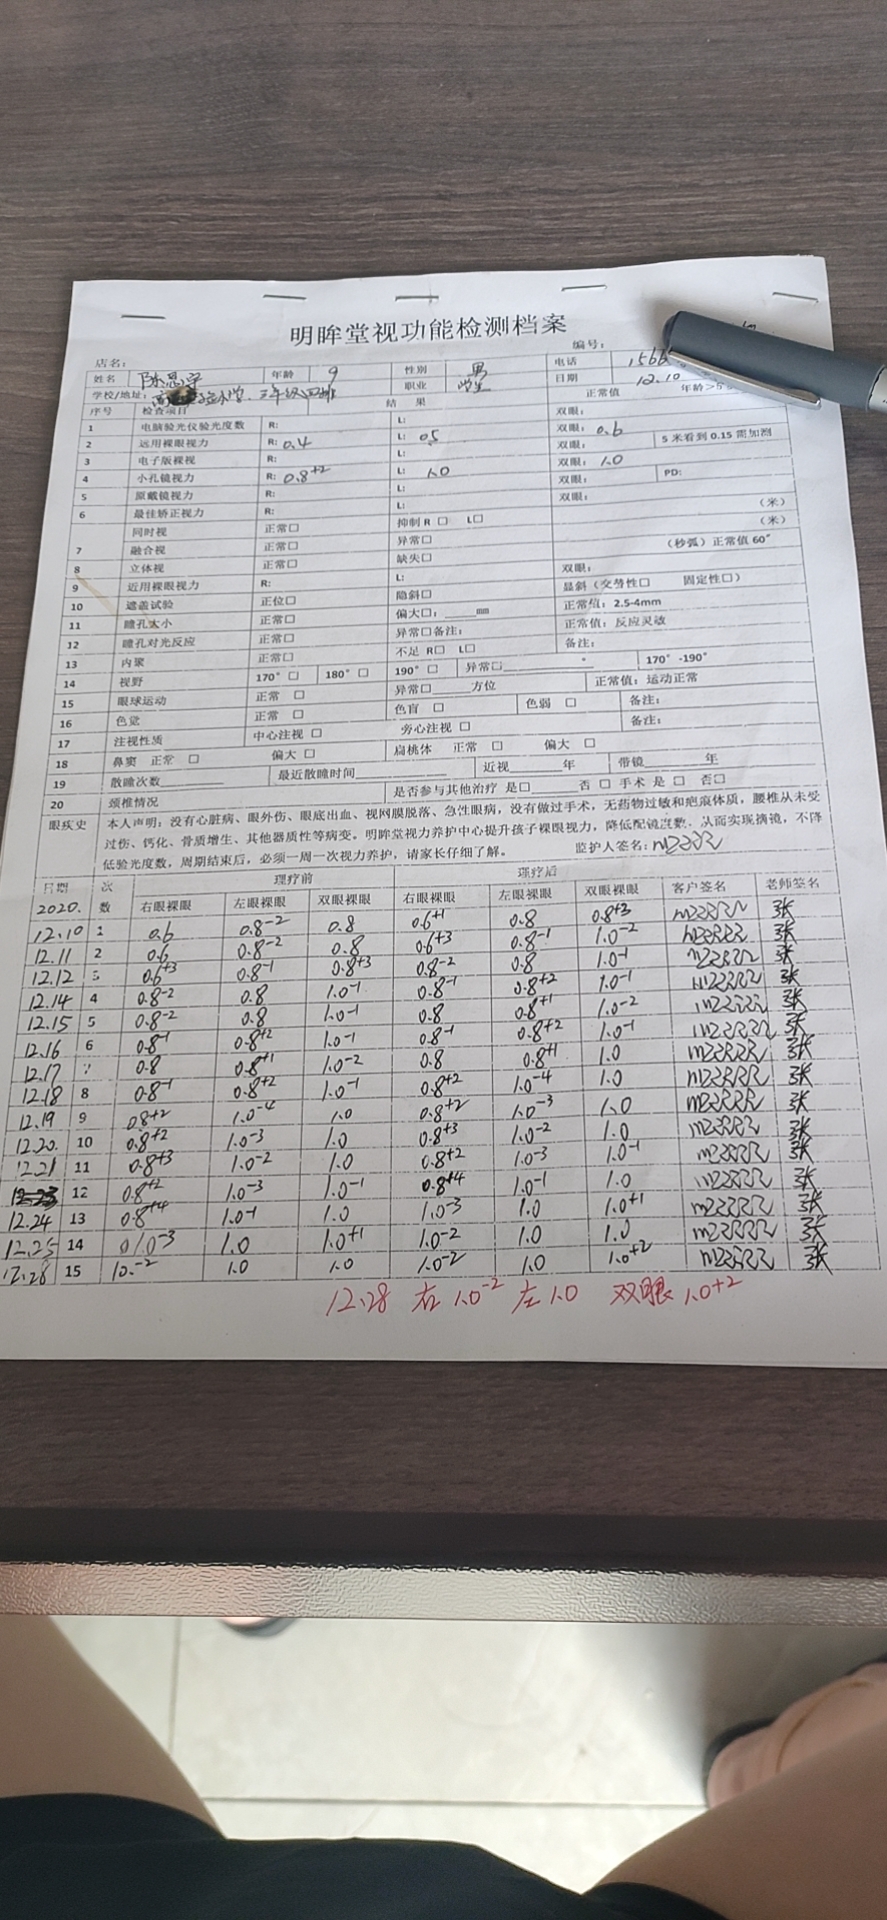 明眸堂视功能检测档案
店名： 编号：
姓名 年龄 9 性别 男 电话 1566
学校/地址： 三年级四班 职业 学生 日期 12.10
序号 检查项目 结 果 正常值 年龄>5
1 电脑验光仪验光度数 R: L: 双眼：
2 远用裸眼视力 R: 0.4 L: 0.5 双眼：0.6
3 电子版裸视 R: L: 双眼： 5 米看到 0.15 需加测
4 小孔镜视力 R: 0.8+2 L: 1.0 双眼：1.0
5 原戴镜视力 R: L: 双眼： PD:
6 最佳矫正视力 R: L: 双眼：
同时视 正常□ 抑制 R □ L□ （米）
7 融合视 正常□ 异常□ （米）
8 立体视 正常□ 缺失□ （秒弧）正常值 60"
9 近用裸眼视力 R: L: 双眼：
10 遮盖试验 正位□ 隐斜□ 显斜（交替性□ 固定性□）
11 瞳孔大小 正常□ 偏大□：_____mm 正常值：2.5-4mm
12 瞳孔对光反应 正常□ 异常□备注： 正常值：反应灵敏
13 内聚 正常□ 不足 R□ L□ 备注：
14 视野 170° □ 180° □ 190° □ 异常□________° 170° -190°
15 眼球运动 正常 □ 异常□_____方位 正常值：运动正常
16 色觉 正常 □ 色盲 □ 色弱 □ 备注：
17 注视性质 中心注视 □ 旁心注视 □ 备注：
18 鼻窦 正常 □ 偏大 □ 扁桃体 正常 □ 偏大 □
19 散瞳次数________ 最近散瞳时间________ 近视______年 带镜______年
20 颈椎情况 是否参与其他治疗 是□______否 □ 手术 是 □ 否□
眼疾史 本人声明：没有心脏病、眼外伤、眼底出血、视网膜脱落、急性眼病，没有做过手术，无药物过敏和疤痕体质，腰椎从未受
过伤、钙化、骨质增生、其他器质性等病变。明眸堂视力养护中心提升孩子裸眼视力，降低配镜度数，从而实现摘镜，不降
低验光度数，周期结束后，必须一周一次视力养护，请家长仔细了解。 监护人签名：
日期 次 理疗前 理疗后
2020. 数 右眼裸眼 左眼裸眼 双眼裸眼 右眼裸眼 左眼裸眼 双眼裸眼 客户签名 老师签名
12.10 1 0.6 0.8-2 0.8 0.6+1 0.8 0.8+3 张
12.11 2 0.6 0.8-2 0.8 0.6+3 0.8-1 1.0-2 张
12.12 3 0.6+3 0.8-1 0.8+3 0.8-2 0.8 1.0-1 张
12.14 4 0.8-2 0.8 1.0-1 0.8-1 0.8+2 1.0-1 张
12.15 5 0.8-2 0.8 1.0-1 0.8 0.8+1 1.0-2 张
12.16 6 0.8-1 0.8+2 1.0-1 0.8-1 0.8+2 1.0-1 张
12.17 7 0.8 0.8+1 1.0-2 0.8 0.8+1 1.0 张
12.18 8 0.8-1 0.8+2 1.0-1 0.8+2 1.0-4 1.0 张
12.19 9 0.8+2 1.0-4 1.0 0.8+2 1.0-3 1.0 张
12.20. 10 0.8+2 1.0-3 1.0 0.8+3 1.0-2 1.0 张
12.21 11 0.8+3 1.0-2 1.0 0.8+2 1.0-3 1.0-1 张
12.23 12 0.8+2 1.0-3 1.0-1 0.8+4 1.0-1 1.0 张
12.24 13 0.8+4 1.0-1 1.0 1.0-3 1.0 1.0+1 张
12.25 14 1.0-3 1.0 1.0+1 1.0-2 1.0 1.0 张
12.28 15 10.-2 1.0 1.0 1.0-2 1.0 1.0+2 张
12.28 右 1.0-2 左 1.0 双眼 1.0+2